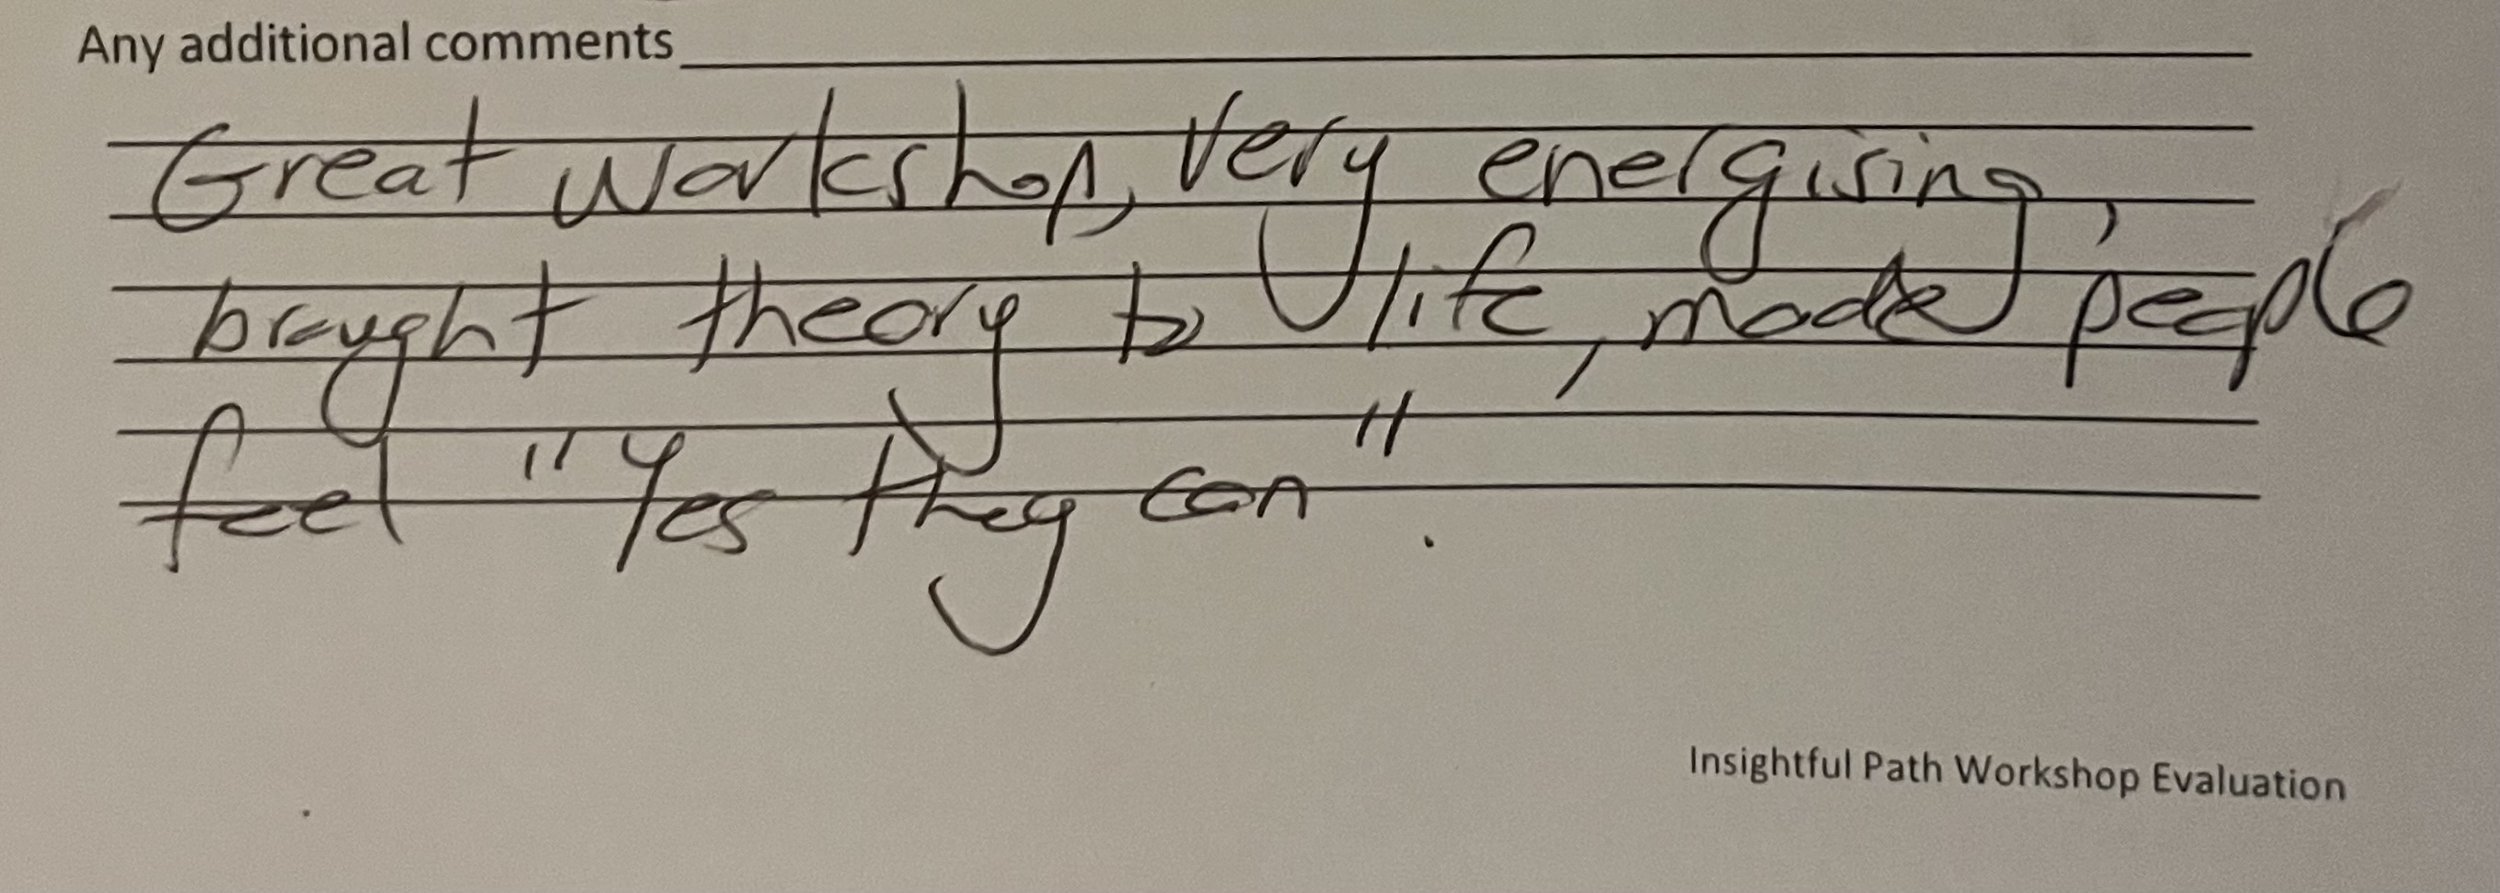 Any additional comments
Great workshop, Very energising,
brought theory to life, made people
feel "Yes they can".
Insightful Path Workshop Evaluation